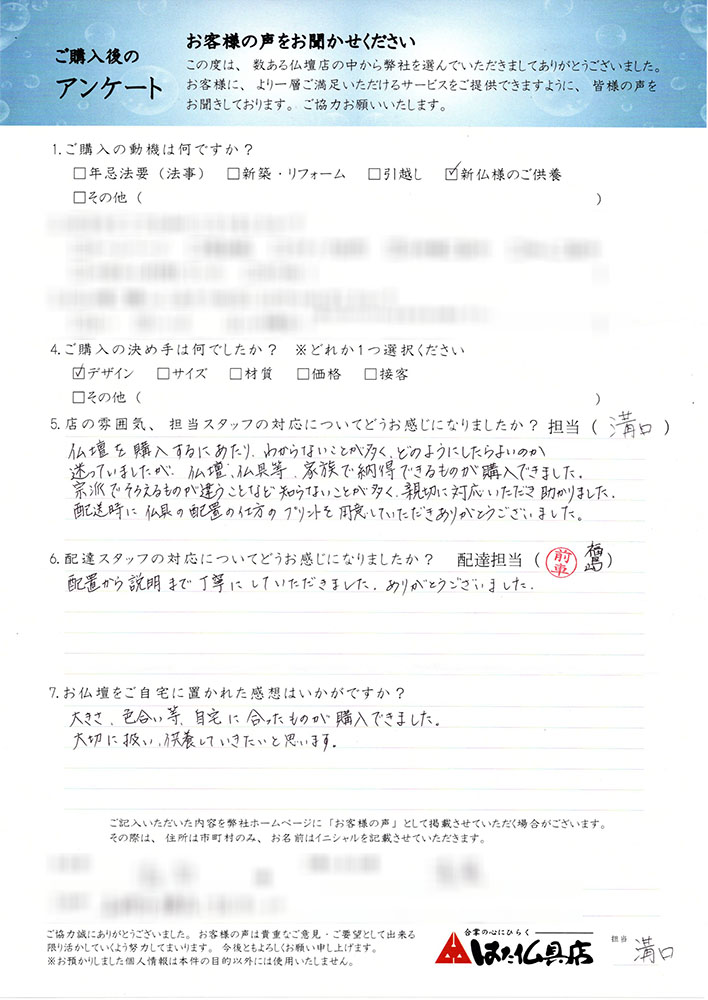 ご購入後の
アンケート
お客様の声をお聞かせください
この度は、数ある仏壇店の中から弊社を選んでいただきましてありがとうございました。
お客様に、より一層ご満足いただけるサービスをご提供できますように、皆様の声を
お聞きしております。ご協力お願いいたします。
1.ご購入の動機は何ですか？
□年忌法要（法事） □新築・リフォーム □引越し ☑新仏様のご供養
□その他（ ）
4.ご購入の決め手は何でしたか？ ※どれか1つ選択ください
☑デザイン □サイズ □材質 □価格 □接客
□その他（ ）
5.店の雰囲気、担当スタッフの対応についてどうお感じになりましたか？担当（ 溝口 ）
仏壇を購入するにあたり、わからないことが多く、どのようにしたらよいのか
迷っていましたが、仏壇、仏具等、家族で納得できるものが購入できました。
宗派でそろえるものが違うことなど知らないことが多く、親切に対応いただき助かりました。
配送時に仏具の配置の仕方のプリントを用意していただきありがとうございました。
6.配達スタッフの対応についてどうお感じになりましたか？ 配達担当（ 前車 ）
配置から説明まで丁寧にしていただきました。ありがとうございました。
7.お仏壇をご自宅に置かれた感想はいかがですか？
大きさ、色合い等、自宅に合ったものが購入できました。
大切に扱い、供養していきたいと思います。
ご記入いただいた内容を弊社ホームページに「お客様の声」として掲載させていただく場合がございます。
その際は、住所は市町村のみ、お名前はイニシャルを記載させていただきます。
ご協力誠にありがとうございました。お客様の声は貴重なご意見・ご要望として出来る
限り活かしていくよう努力してまいります。今後ともよろしくお願い申し上げます。
※お預かりしました個人情報は本件の目的以外には使用いたしません。
合掌の心にひらく
はた仏具店
担当 溝口